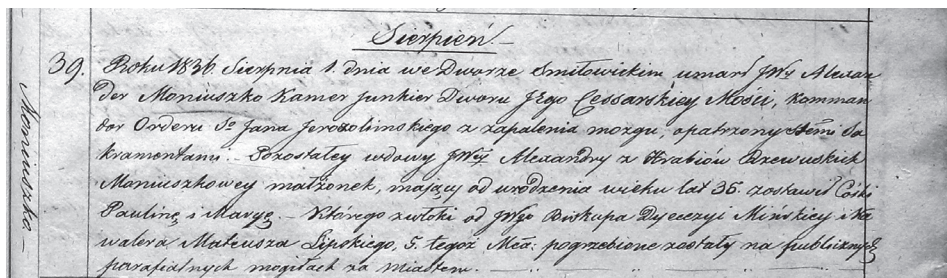 Sierpień. –
39. Roku 1836. Sierpnia 1. dnia we Dworze Smiłowickim umarł JWy Alexan
der Moniuszko Kamer Junkier Dworu Jego Cessarskiey Mości, Komman
dor Orderu So Jana Jerozolimskiego z zapalenia mozgu, opatrzony Stemi Sa
kramentami. Pozostałey wdowy JWey Alexandry z Hrabiow Rzewuskich
Moniuszkowey małżonek, mający od urodzenia wieku lat 35. zostawił Córki
Paulinę i Maryę. – Którego zwłoki od JWgo Biskupa Dyecezyi Mińskiey i Ka
walera Mateusza Lipskiego, 5. tegoż Mca. pogrzebione zostały na publicznych
parafialnych mogiłach za miastem. –
Moniuszko –